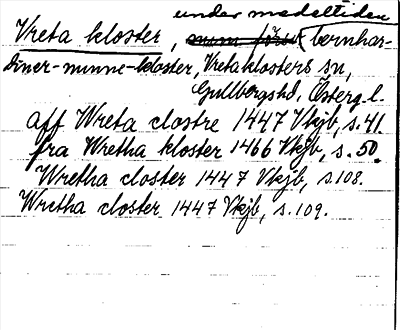 under medeltiden
Vreta kloster, bernhar-
diner-nunne-kloster, Vreta klosters sn,
Gullbergs hd, Österg. l.
aff Wreta clostre 1447 Vkjb, s. 41.
fra Wretha kloster 1466 Vkjb, s. 50.
Wretha closter 1447 Vkjb, s. 108.
Wretha closter 1447 Vkjb, s. 109.